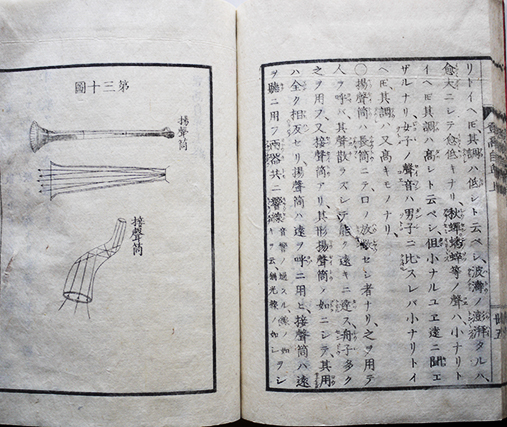 リトイヘ𪜈其調ハ低シト云ベシ、波濤ノ澎湃タルハ、
愈大ニシテ愈低キナリ、秋蟬蟋蟀等ノ聲ハ小ナリト
イヘ𪜈其調ハ高シト云ベシ、但小ナルユヱ遠ニ聞エ
ザルナリ、女子ノ聲音ハ男子ニ比スレバ小ナリトイ
ヘ𪜈其調ハ又高キモノナリ、
○揚聲筒ハ長筒ニテ口ノ放セシ者ナリ、之ヲ用テ
人ヲ呼バ其聲散ラズシテ能ク遠キニ達ス、舟子多ク
之ヲ用フ、又接聲筒アリ、其形揚聲筒ノ如ニシテ、其用
ハ全ク相反セリ、揚聲筒ハ遠ヲ呼ニ用ヒ、接聲筒ハ遠
ヲ聽ニ用フ、兩器共ニ
第三十圖
揚聲筒
接聲筒